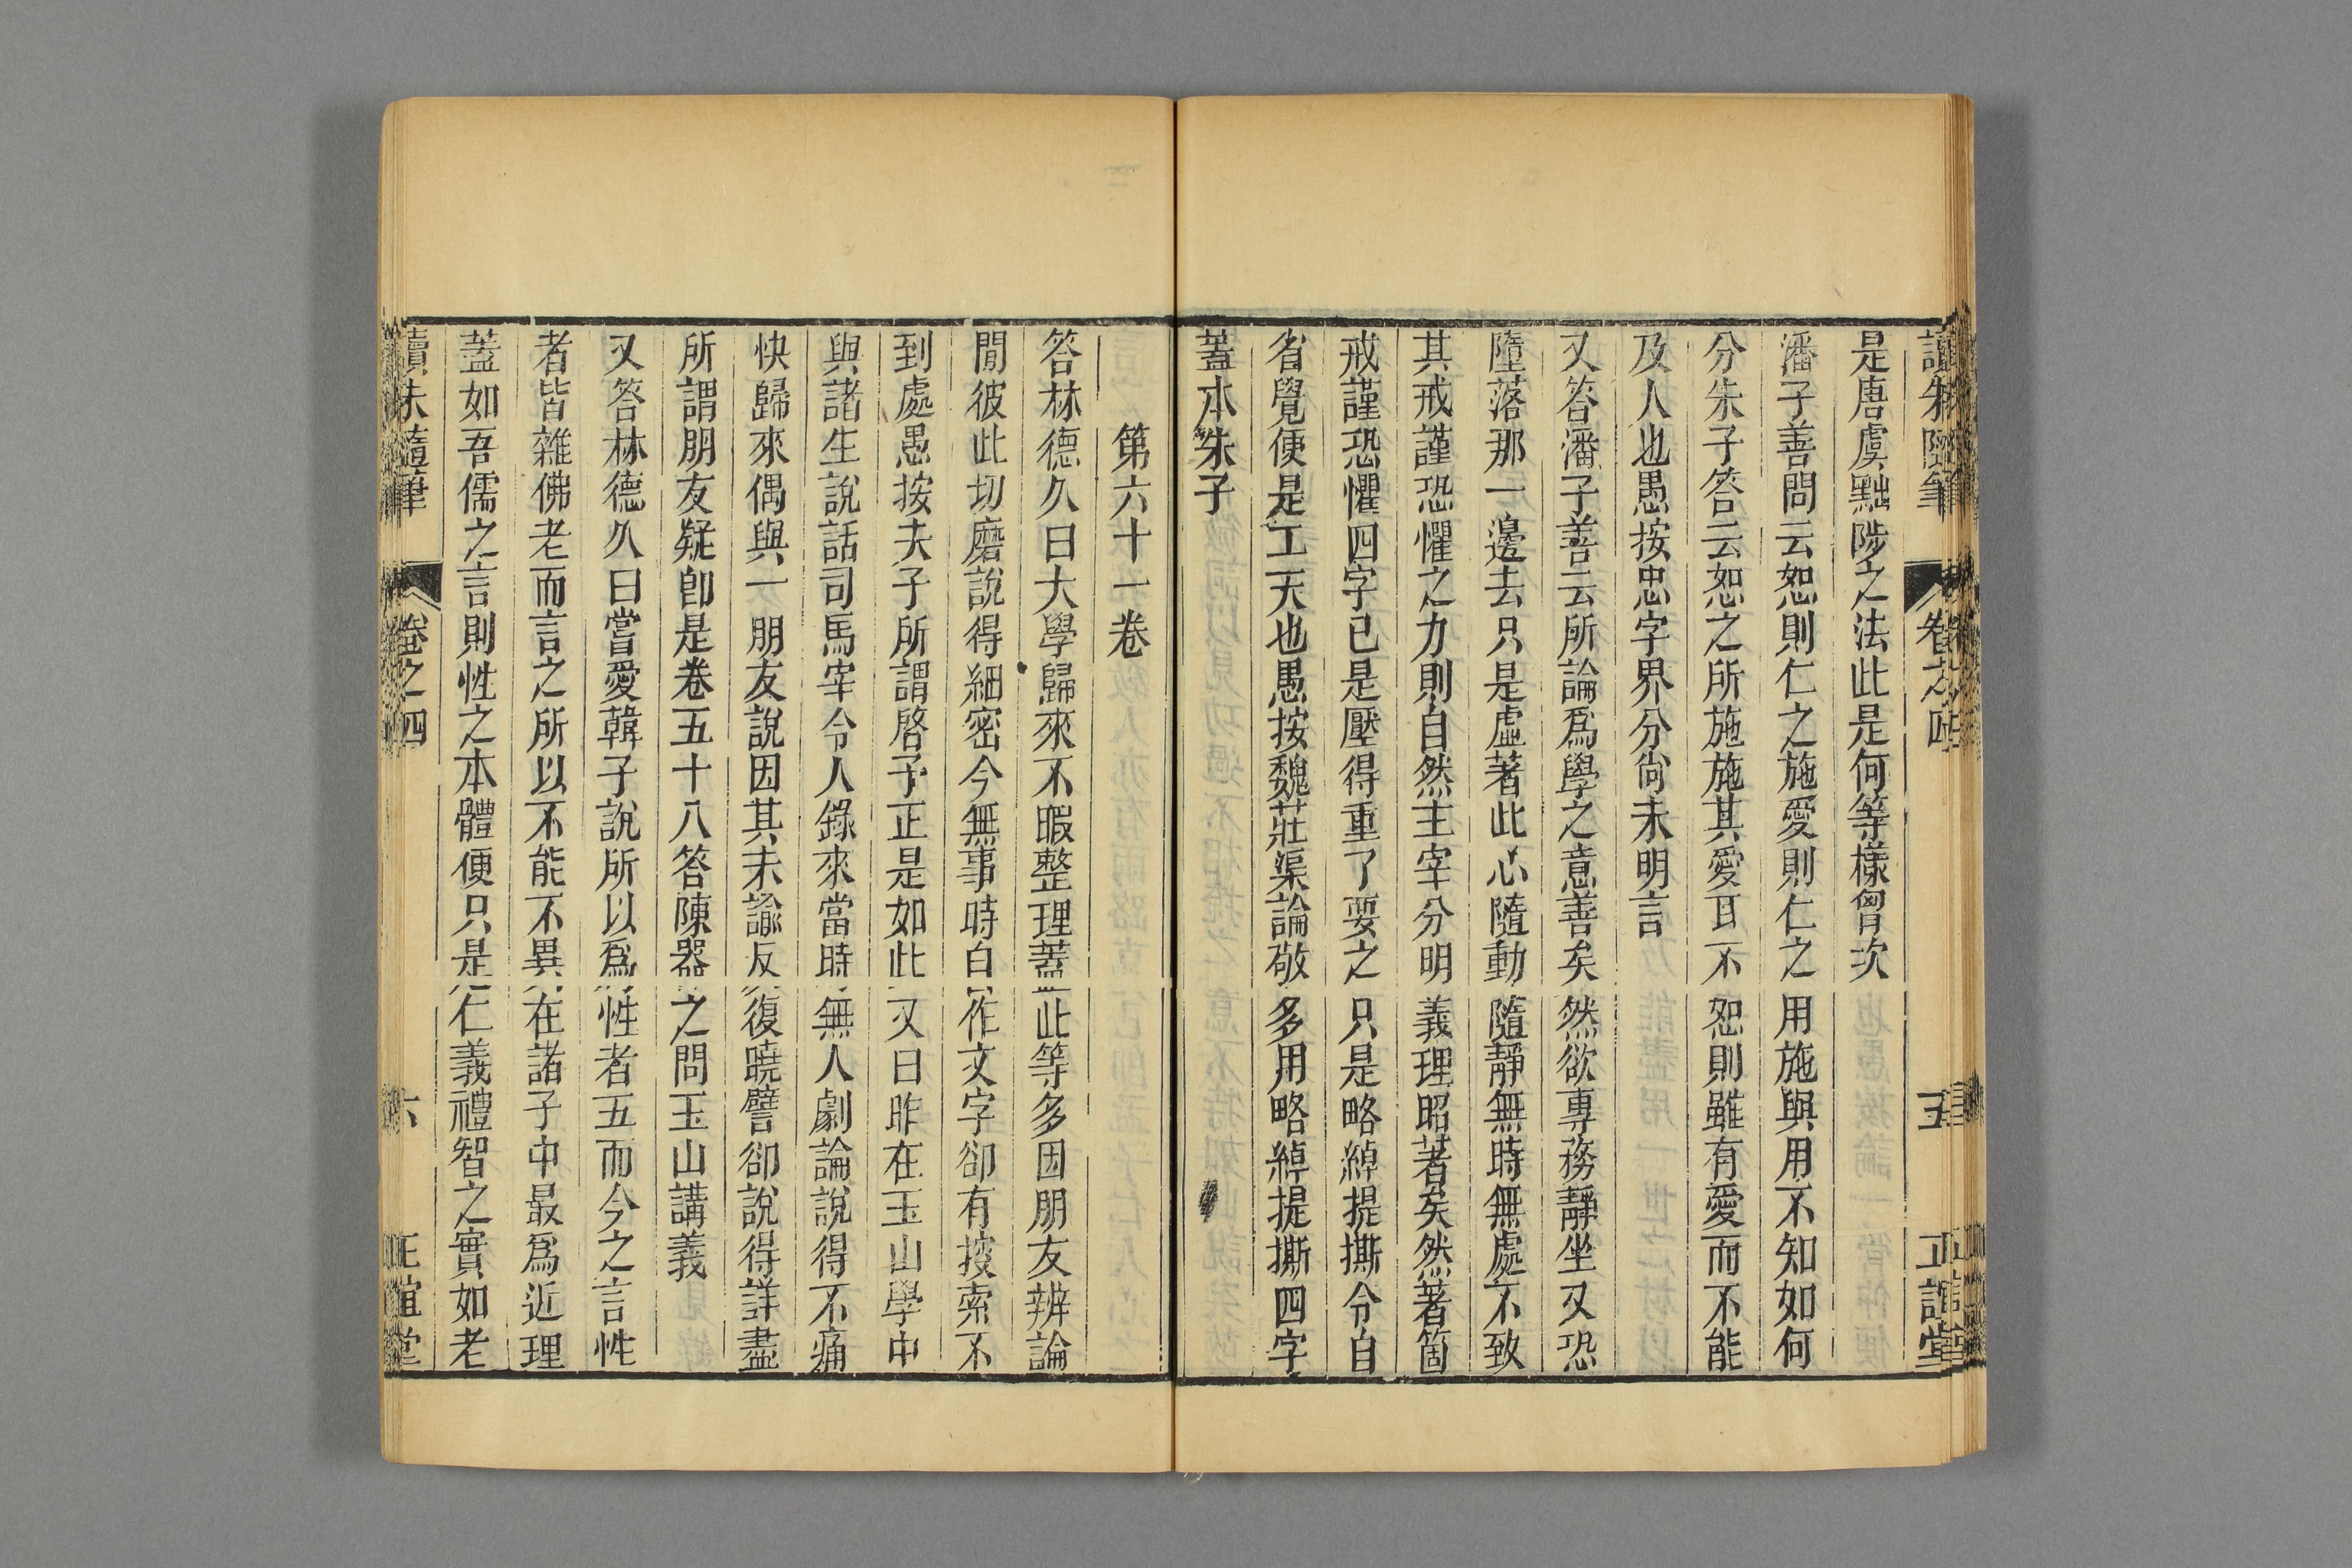 讀朱隨筆 卷之四 五 正誼堂
是唐虞黜陟之法此是何等樣曾次
潘子善問云恕則仁之施愛則仁之用施與用不知如何
分朱子答云恕之所施施其愛耳不恕則雖有愛而不能
及人也愚按忠字界分尙未明言
又答潘子善云所論爲學之意善矣然欲專務靜坐又恐
墮落那一邊去只是虛著此心隨動隨靜無時無處不致
其戒謹恐懼之力則自然主宰分明義理昭著矣然著箇
戒謹恐懼四字已是壓得重了要之只是略綽提撕令自
省覺便是工夫也愚按魏莊渠論敬多用略綽提撕四字
蓋本朱子
第六十一卷
答林德久曰大學歸來不暇整理蓋此等多因朋友辨論
閒彼此切磨說得細密今無事時自作文字卻有搜索不
到處愚按夫子所謂啓予正是如此又曰昨在玉山學中
與諸生說話司馬宰令人錄來當時無人劇論說得不痛
快歸來偶與一朋友說因其未諭反復曉譬卻說得詳盡
所謂朋友疑卽是卷五十八答陳器之問玉山講義
又答林德久曰嘗愛韓子說所以爲性者五而今之言性
者皆雜佛老而言之所以不能不異在諸子中最爲近理
蓋如吾儒之言則性之本體便只是仁義禮智之實如老
讀朱隨筆 卷之四 六 正誼堂